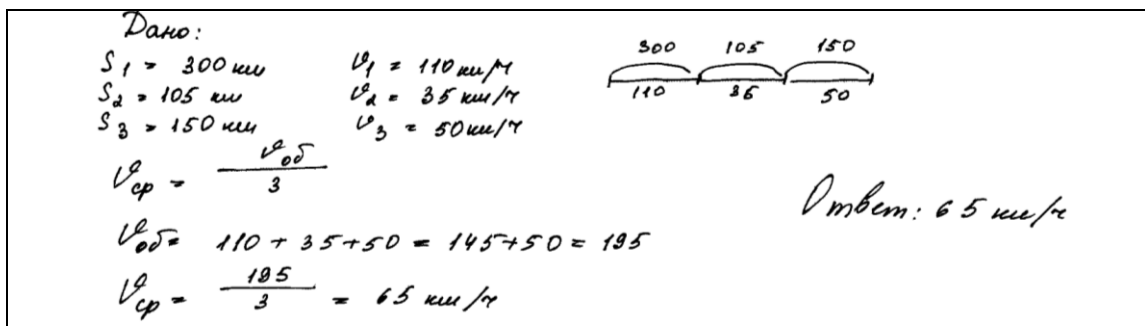 Дано:
S₁ = 300 км v₁ = 110 км/ч
S₂ = 105 км v₂ = 35 км/ч
S₃ = 150 км v₃ = 50 км/ч
300 105 150
110 35 50
v_ср = v_об / 3
v_об = 110 + 35 + 50 = 145 + 50 = 195
v_ср = 195 / 3 = 65 км/ч
Ответ: 65 км/ч